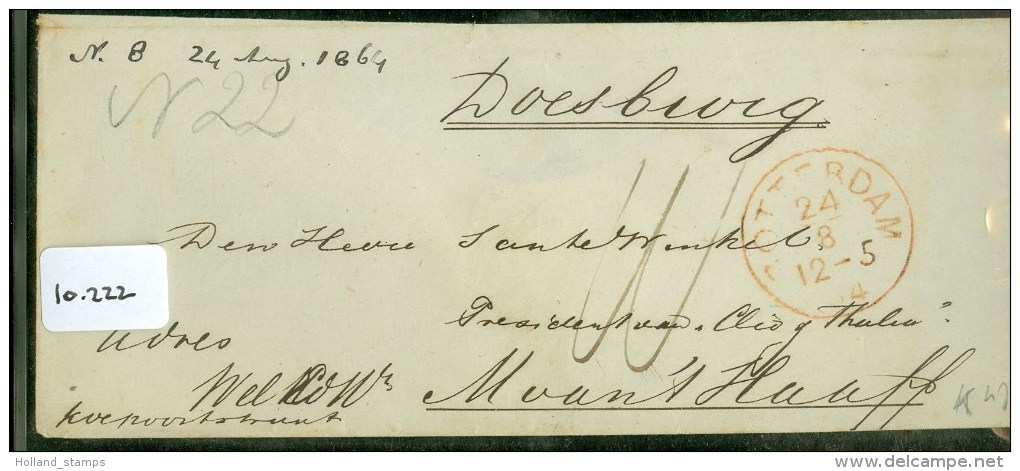 N. 8 24 Aug. 1864
N 22
Doesburg.
ROTTERDAM
24
8
12-5
4
Den Heere
10.222
President van „Clio & Thalia".
Adres
M van 't Haaff
Koepoortstraat
Holland_stamps
www.delcampe.net